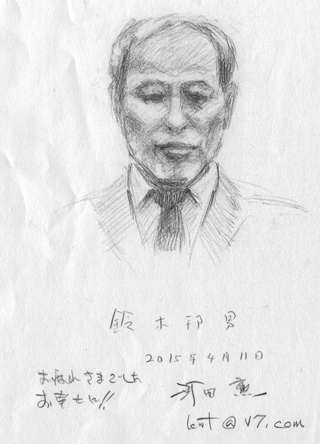 鈴木邦男
2015年4月11日
お疲れさまでした
お幸せに!!
河田 勲
@v7.com